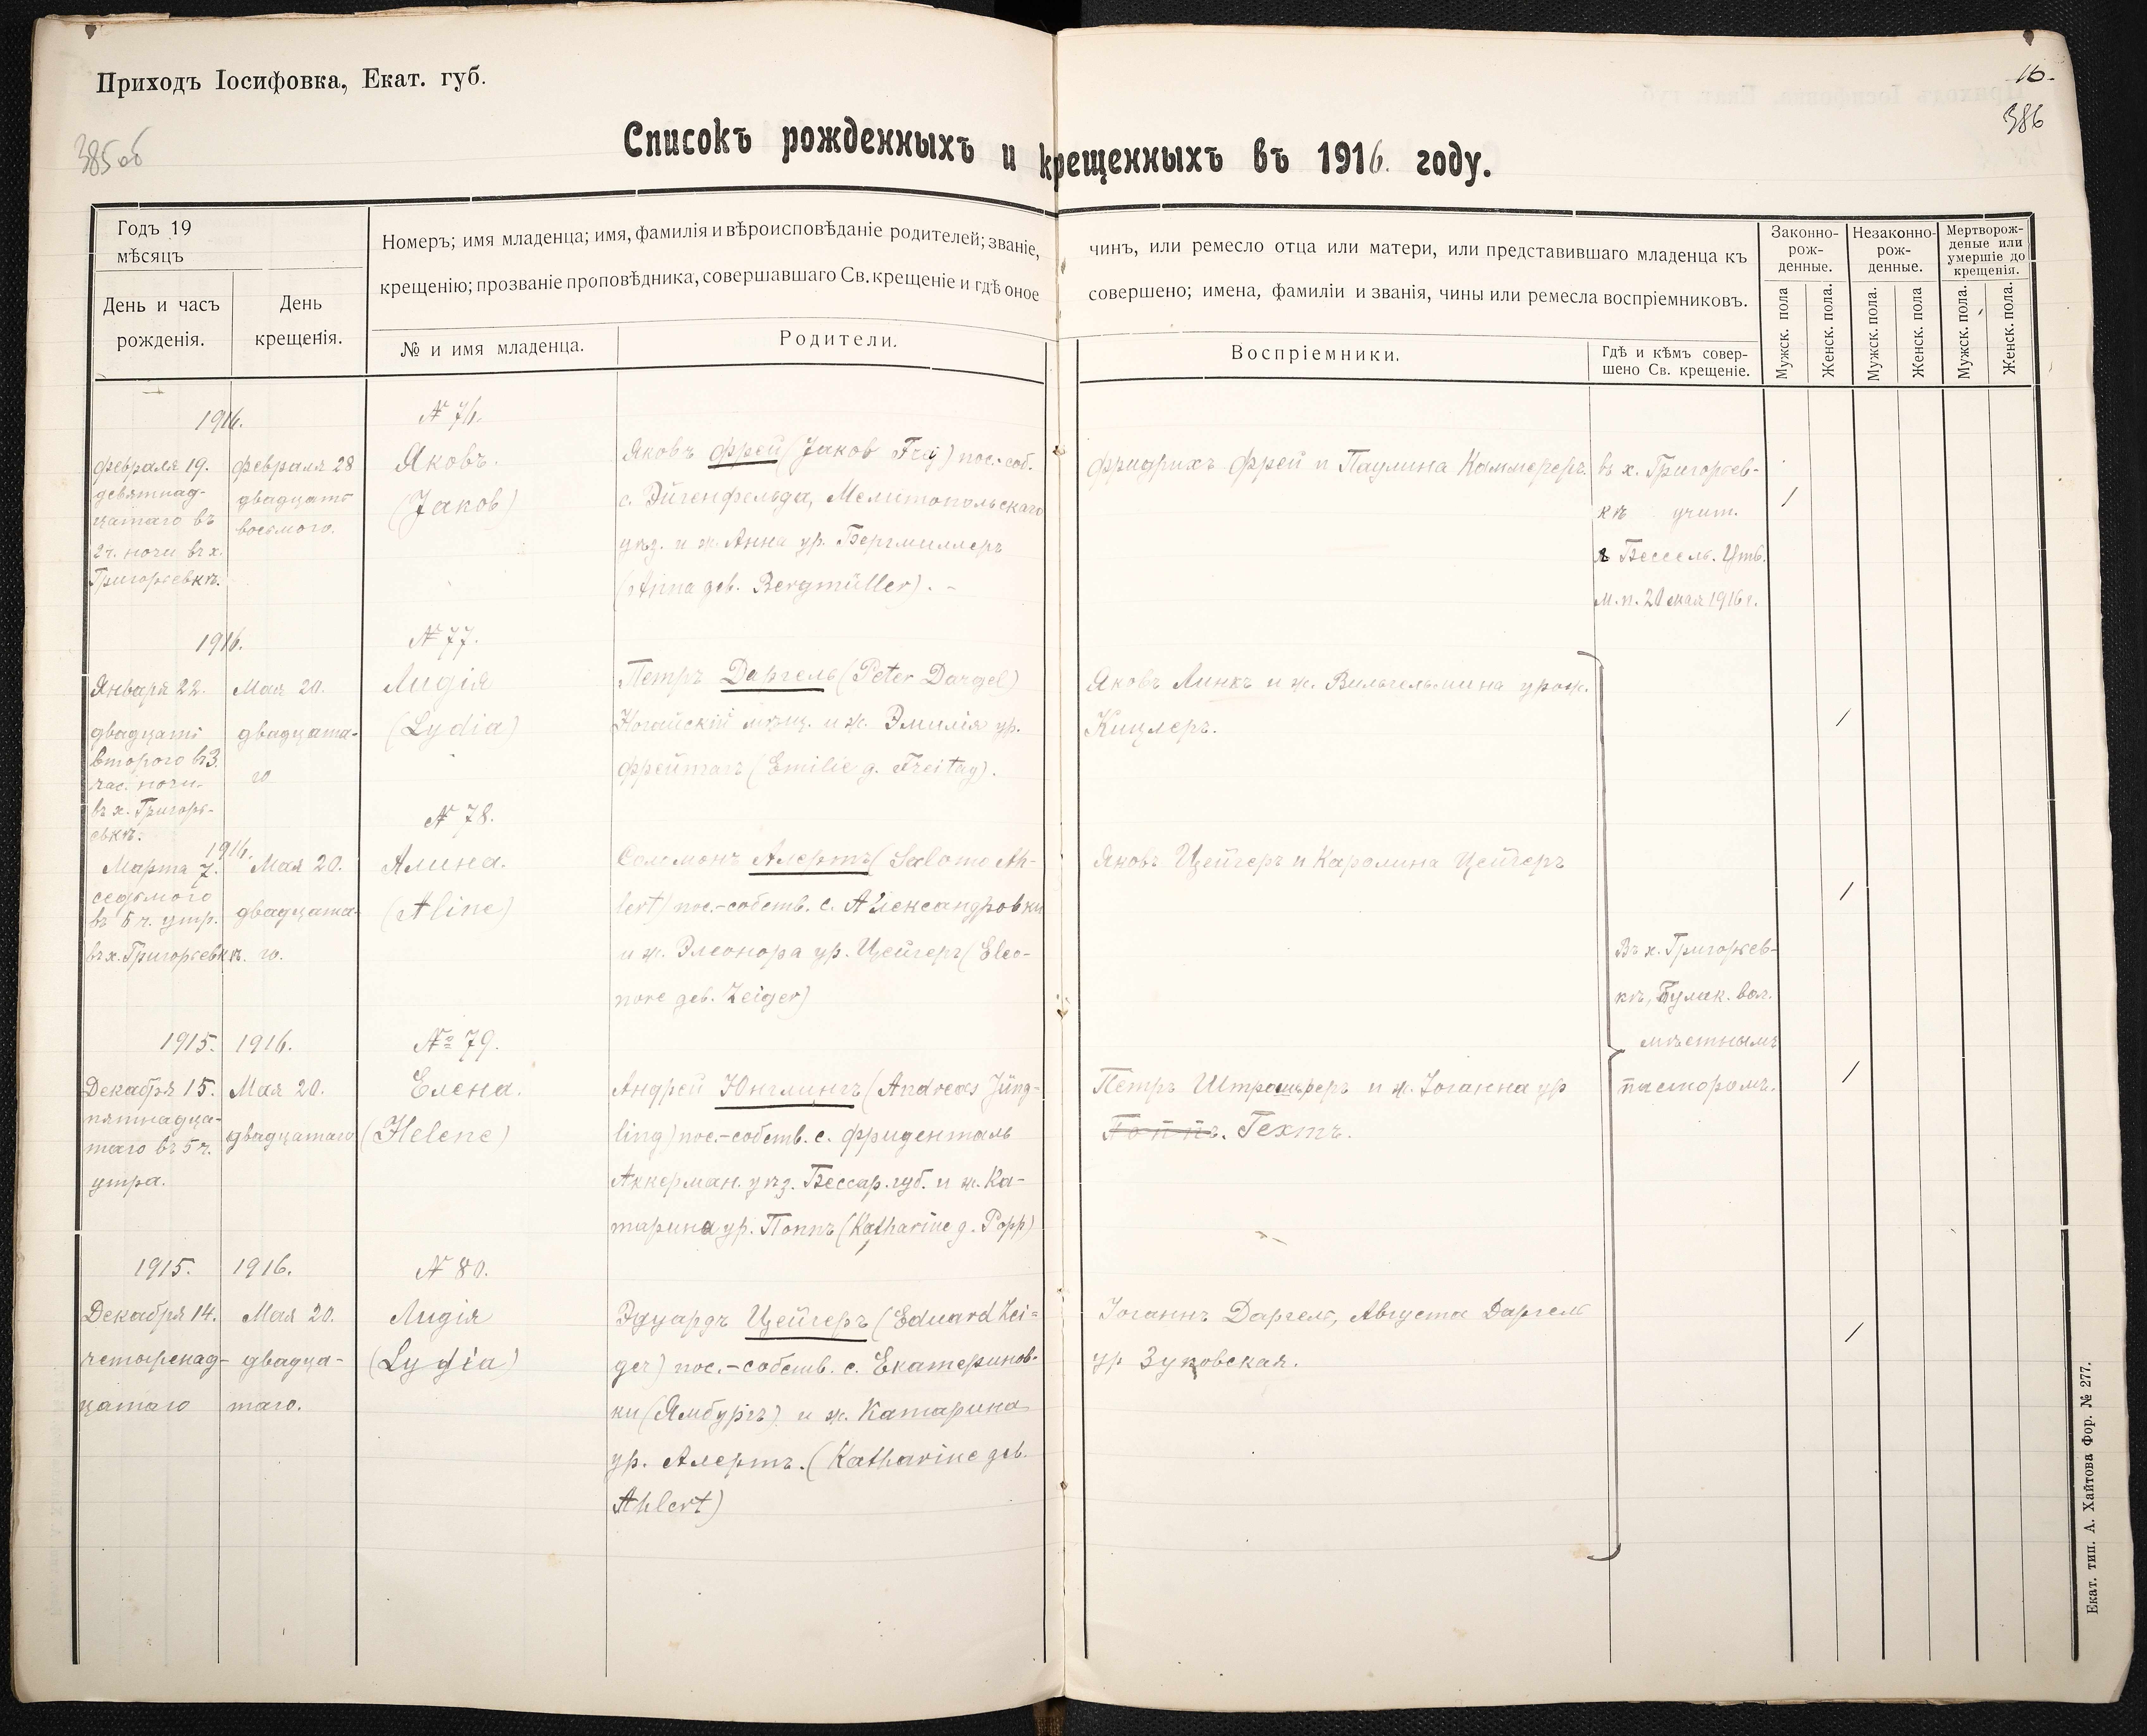 Приходъ Іосифовка, Екат. губ.
16.
386
385 об
Списокъ рожденныхъ и крещенныхъ въ 1916. году.
Годъ 19
мѣсяцъ
День и часъ
рожденія.
День
крещенія.
Номеръ; имя младенца; имя, фамилія и вѣроисповѣданіе родителей; званіе,
крещенію; прозваніе проповѣдника, совершавшаго Св. крещеніе и гдѣ оное
№ и имя младенца.
Родители.
чинъ, или ремесло отца или матери, или представившаго младенца къ
совершено; имена, фамиліи и званія, чины или ремесла воспріемниковъ.
Воспріемники.
Гдѣ и кѣмъ совер-
шено Св. крещеніе.
Законно-
рож-
денные.
Незаконно-
рож-
денные.
Мертворож-
деные или
умершіе до
крещенія.
Мужск. пола
Женск. пола.
Мужск. пола.
Женск. пола
Мужск. пола.
Женск. пола.
1916.
Февраля 19.
девятнад-
цатаго въ
2 ч. ночи въ х.
Григорьевкѣ.
Февраля 28
двадцать
восьмого.
№ 76.
Яковъ.
(Jakob)
Яковъ Фрей (Jakob Frey) пос.-соб.
с. Эйгенфельда, Мелитопольскаго
уѣз. и ж. Анна ур. Бергмиллеръ
(Anna geb. Bergmüller). -
Фридрихъ Фрей и Паулина Каммереръ.
въ х. Григорьев-
кѣ учит.
Вессель. Утв.
м. п. 20 мая 1916 г.
/
1916.
Января 22.
двадцать
второго въ 3.
час. ночи.
въ х. Григорь-
евкѣ.
Мая 20.
двадцата-
го
№ 77.
Лидія
(Lydia)
Петръ Даргель (Peter Dargel)
Ногайскій мѣщ. и ж. Эмилія ур.
Фрейтагъ (Emilie g. Freitag).
Яковъ Линкъ и ж. Вильгельмина урож.
Кицлеръ.
/
1916.
Марта 7.
седьмого
въ 5 ч. утр.
въ х. Григорьевкѣ.
Мая 20.
двадцата-
го.
№ 78.
Алина.
(Aline)
Соломонъ Алертъ (Salomo Ah-
lert) пос.-собств. с. Александровки
и ж. Элеонора ур. Цейгеръ (Eleo-
nore geb. Zeiger)
Яковъ Цейгеръ и Каролина Цейгеръ
/
Въ х. Григорьев-
кѣ, Булак. вол.
мѣстнымъ
пасторомъ.
1915.
Декабря 15.
пятнадца-
таго въ 5 ч.
утра.
1916.
Мая 20.
двадцатаго
№ 79.
Елена.
(Helene)
Андрей Юнглингъ (Andreas Jüng-
ling) пос.-собств. с. Фриденталь
Аккерман. уѣз. Бессар. губ. и ж. Ка-
тарина ур. Поппъ (Katharine g. Popp)
Петръ и ж. Іоганна ур
Поппъ. Гехтъ.
/
1915.
Декабря 14.
четырнад-
цатаго
1916.
Мая 20.
двадца-
таго.
№ 80.
Лидія
(Lydia)
Эдуардъ Цейгеръ (Eduard Zei=
ger) пос.-собств. с. Екатеринов-
ки (Ямбургъ) и ж. Катарина
ур. Алертъ. (Katharine geb.
Ahlert)
Іоганнъ Даргель, Августа Даргель
ур Зуковская.
/
Екат. тип. А. Хайтова Фор. № 277.